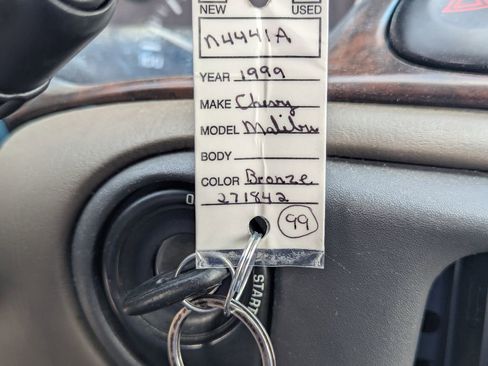 NEW USED
N4441A
YEAR 1999
MAKE Chevy
MODEL Malibu
BODY
COLOR Bronze
271842
99
START